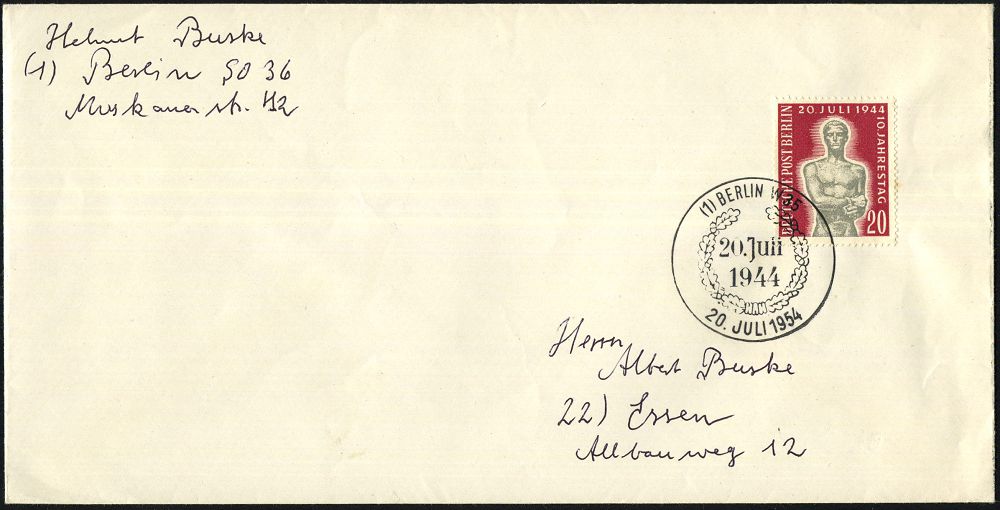 Helmut Buske
(1) Berlin SO 36
Muskauer str. 42
20. JULI 1944
10. JAHRESTAG
DEUTSCHE POST BERLIN
20
(1) BERLIN W 35
20. Juli
1944
20. JULI 1954
Herrn
Albert Buske
22) Essen
Allbauweg 12